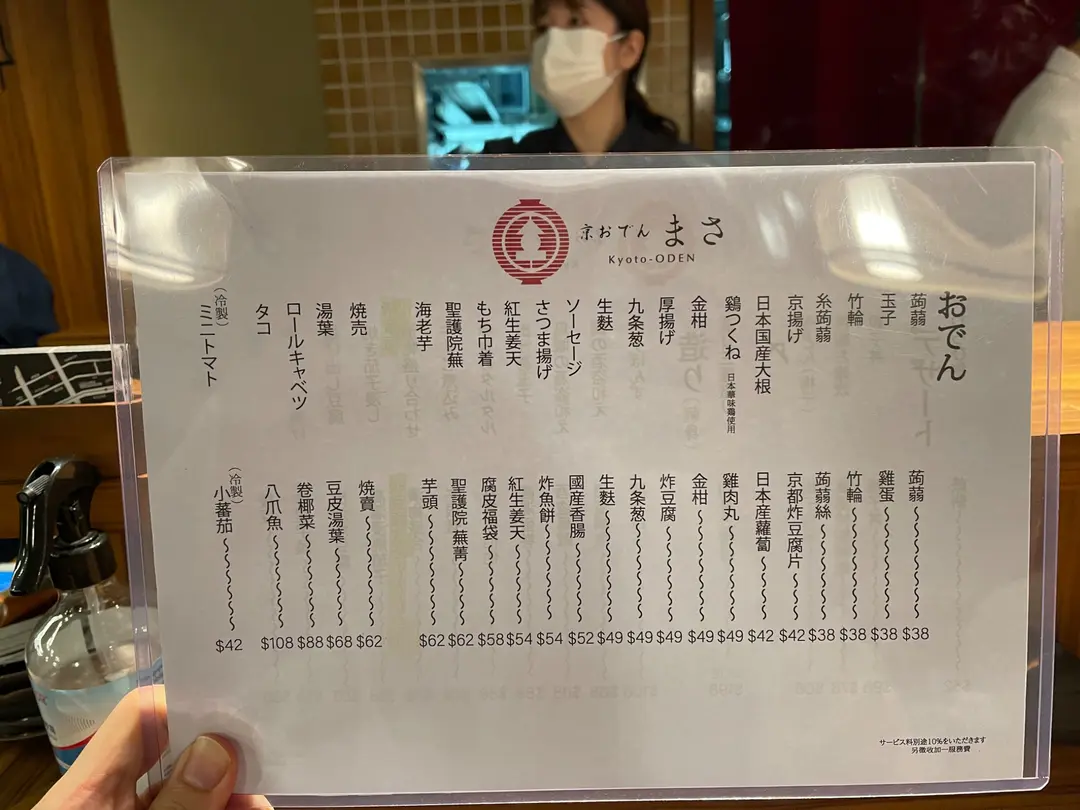 京おでん まさ
Kyoto-ODEN
おでん
蒟蒻
玉子
竹輪
糸蒟蒻
京揚げ
日本国産大根
鶏つくね 日本華味鶏使用
金柑
厚揚げ
九条葱
生麩
ソーセージ
さつま揚げ
紅生姜天
もち巾着
聖護院蕪
海老芋
焼売
湯葉
ロールキャベツ
タコ
(冷製) ミニトマト
蒟蒻 $38
雞蛋 $38
竹輪 $38
蒟蒻絲 $38
京都炸豆腐片 $42
日本産蘿蔔 $42
雞肉丸 $49
金柑 $49
炸豆腐 $49
九条葱 $49
生麩 $49
國産香腸 $52
炸魚餅 $54
紅生姜天 $54
腐皮福袋 $58
聖護院 蕪菁 $62
芋頭 $62
焼賣 $62
豆皮湯葉 $68
卷椰菜 $88
八爪魚 $108
(冷製) 小蕃茄 $42
サービス料別途10%をいただきます
另徵收加一服務費